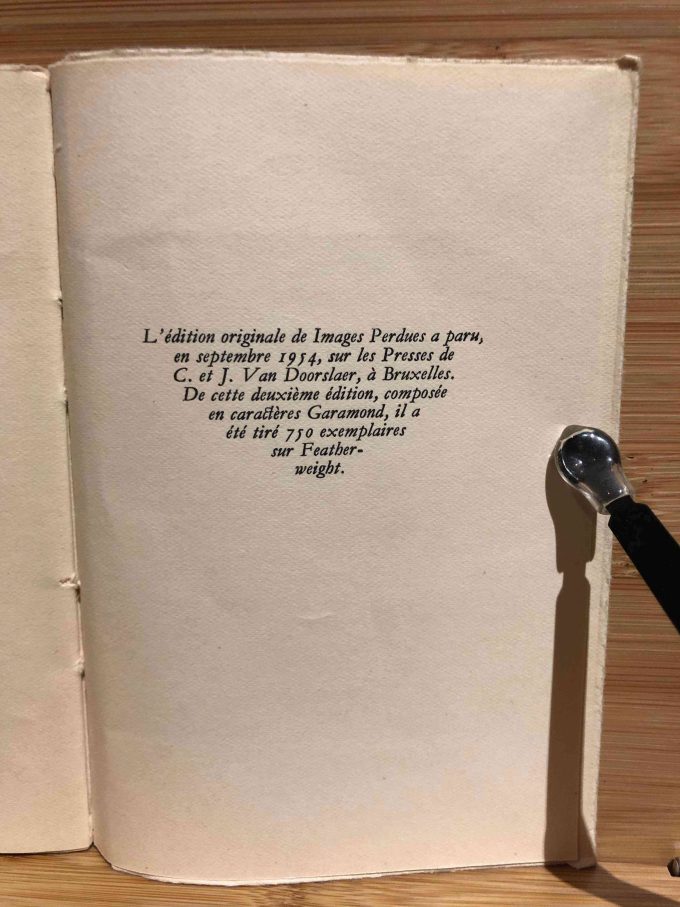 L'édition originale de Images Perdues a paru,
en septembre 1954, sur les Presses de
C. et J. Van Doorslaer, à Bruxelles.
De cette deuxième édition, composée
en caractères Garamond, il a
été tiré 750 exemplaires
sur Feather-
weight.